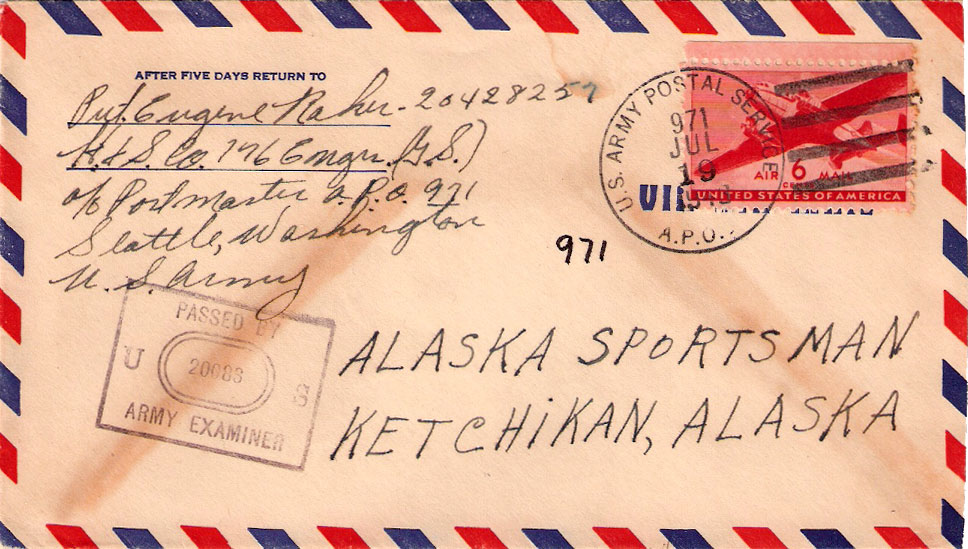 AFTER FIVE DAYS RETURN TO
Pvt. Eugene Raher - 20428257
H.&S. Co. 176 Engrs. (G.S.)
c/o Postmaster A.P.O. 971
Seattle, Washington
U. S. Army
U.S. ARMY POSTAL SERVICE
971
JUL
19
A.P.O.
AIR 6 MAIL
CENTS
UNITED STATES OF AMERICA
VIA
971
PASSED BY
U 20083 S
ARMY EXAMINER
ALASKA SPORTSMAN
KETCHIKAN, ALASKA